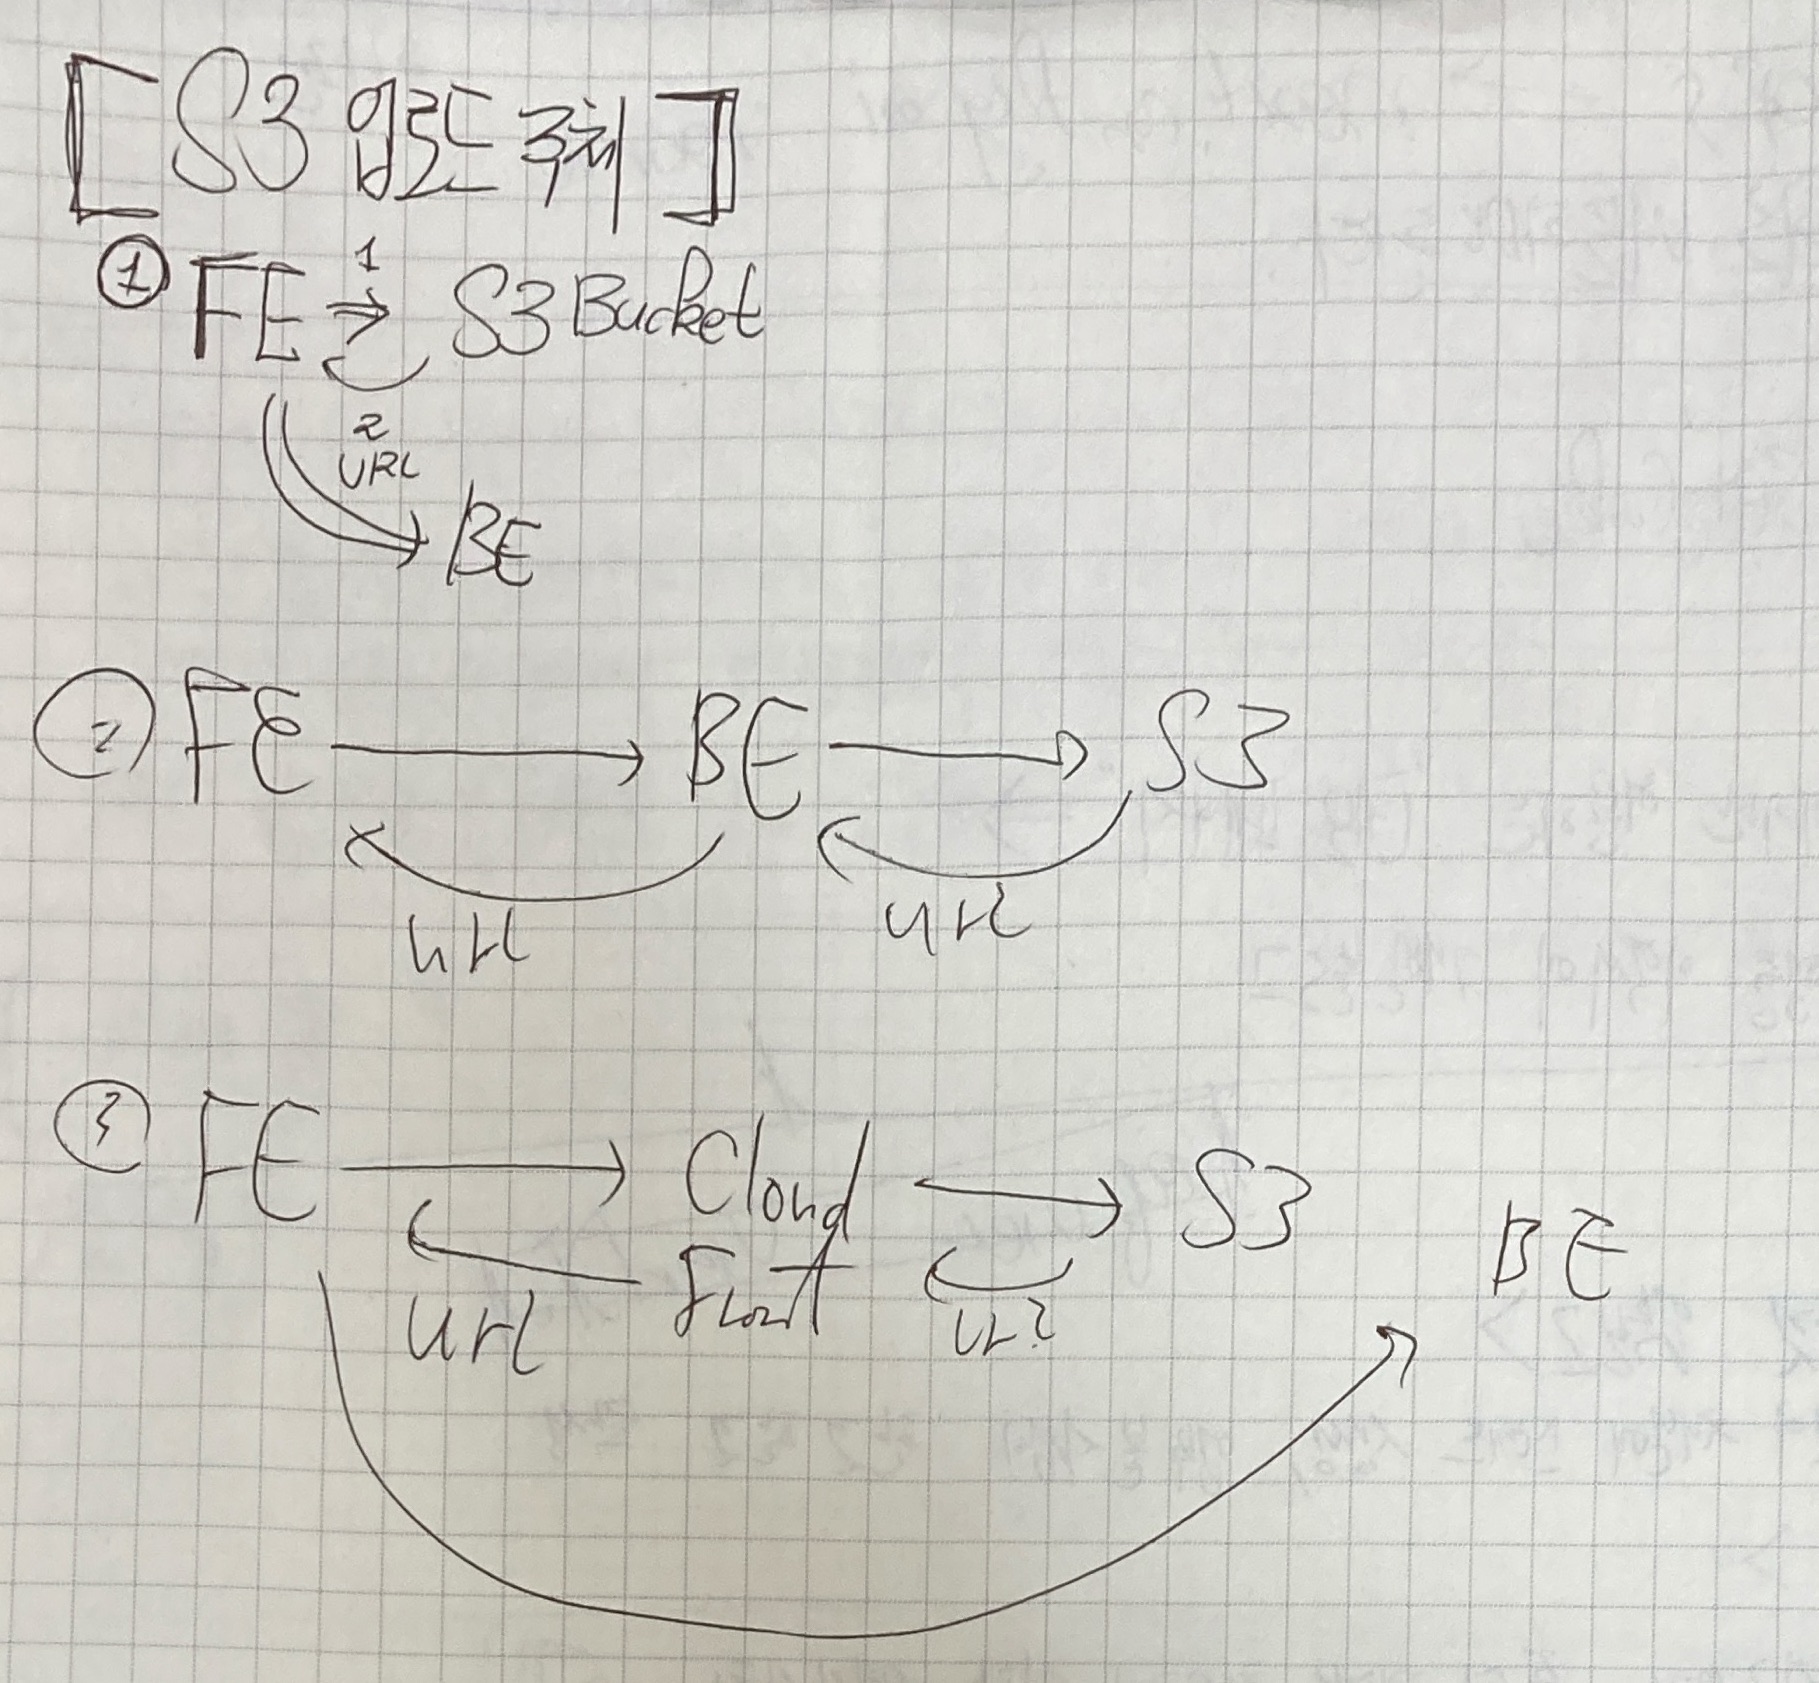 [S3 업로드 주체]
① FE 1 S3 Bucket
2
URL
BE
② FE BE S3
url url
③ FE Cloud S3 BE
Front
url url